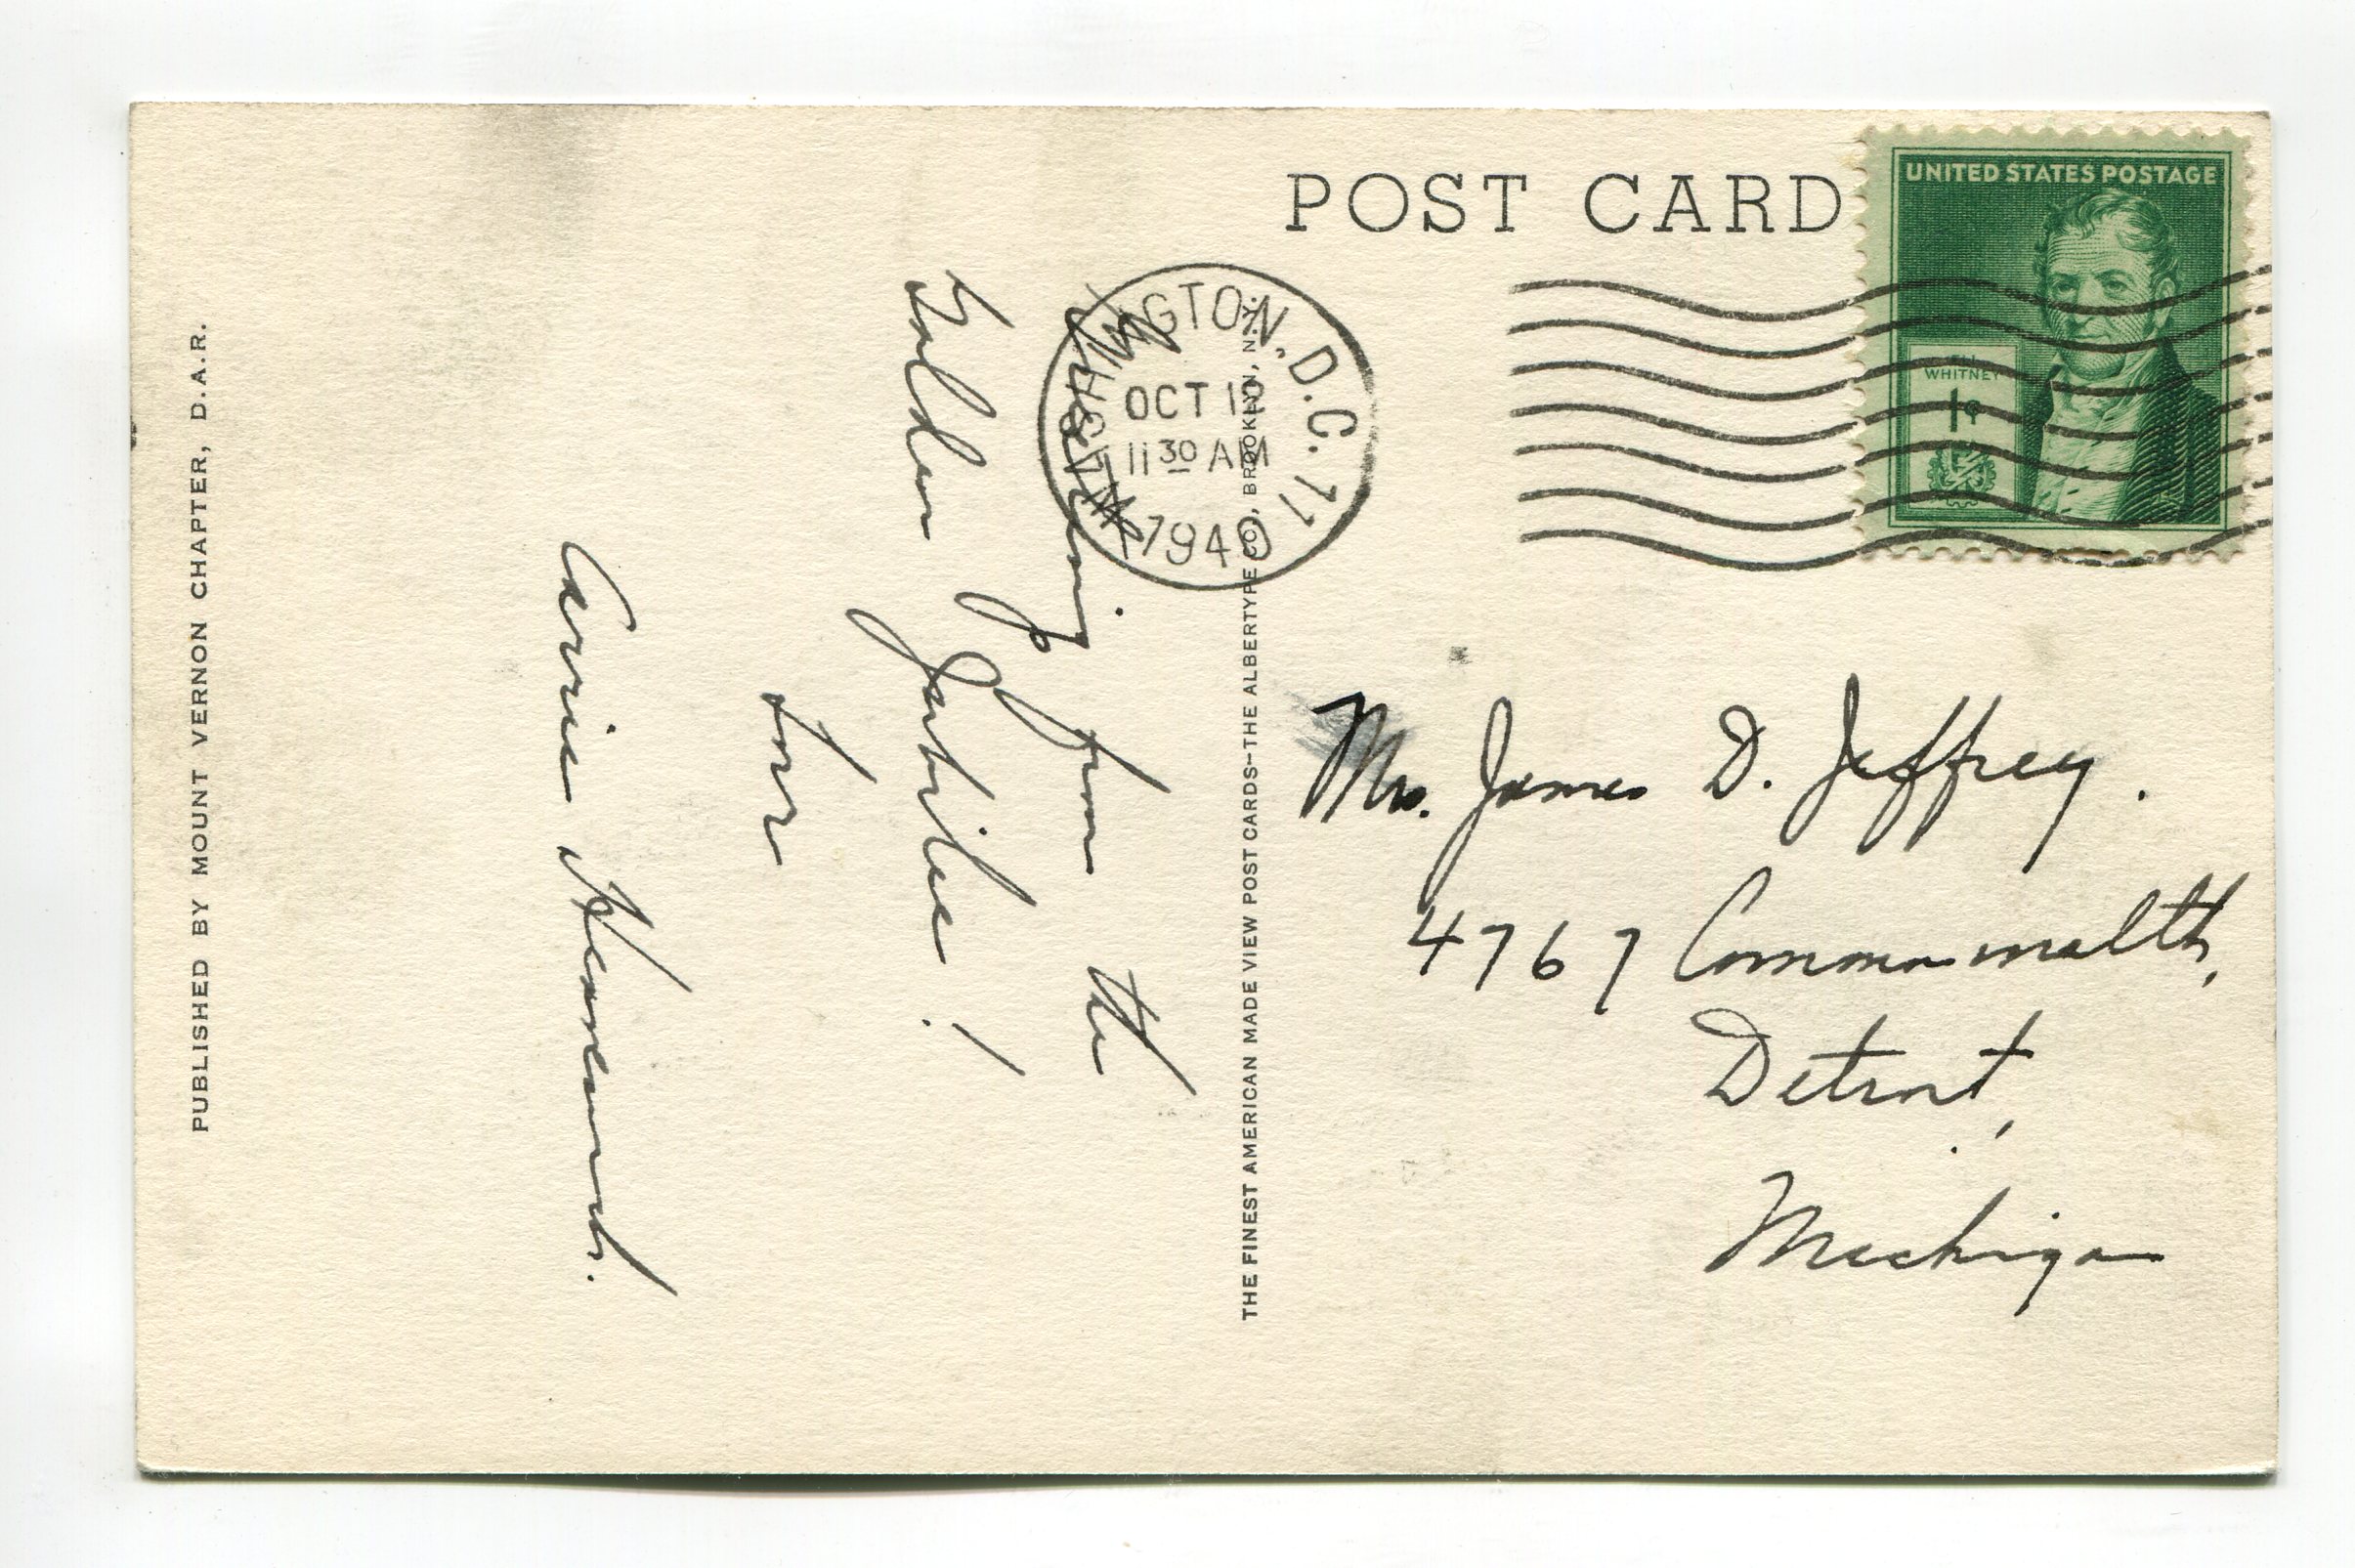 PUBLISHED BY MOUNT VERNON CHAPTER, D.A.R.
Greeting from the
Golden Jubilee!
Love
Carrie
POST CARD
THE FINEST AMERICAN MADE VIEW POST CARDS—THE ALBERTYPE CO., BROOKLYN, N.Y.
WASHINGTON, D.C. 11
OCT
11 30 AM
1940
UNITED STATES POSTAGE
ELI
WHITNEY
1¢
Mrs. James D. Jeffrey.
4767 Commonwealth,
Detroit,
Michigan